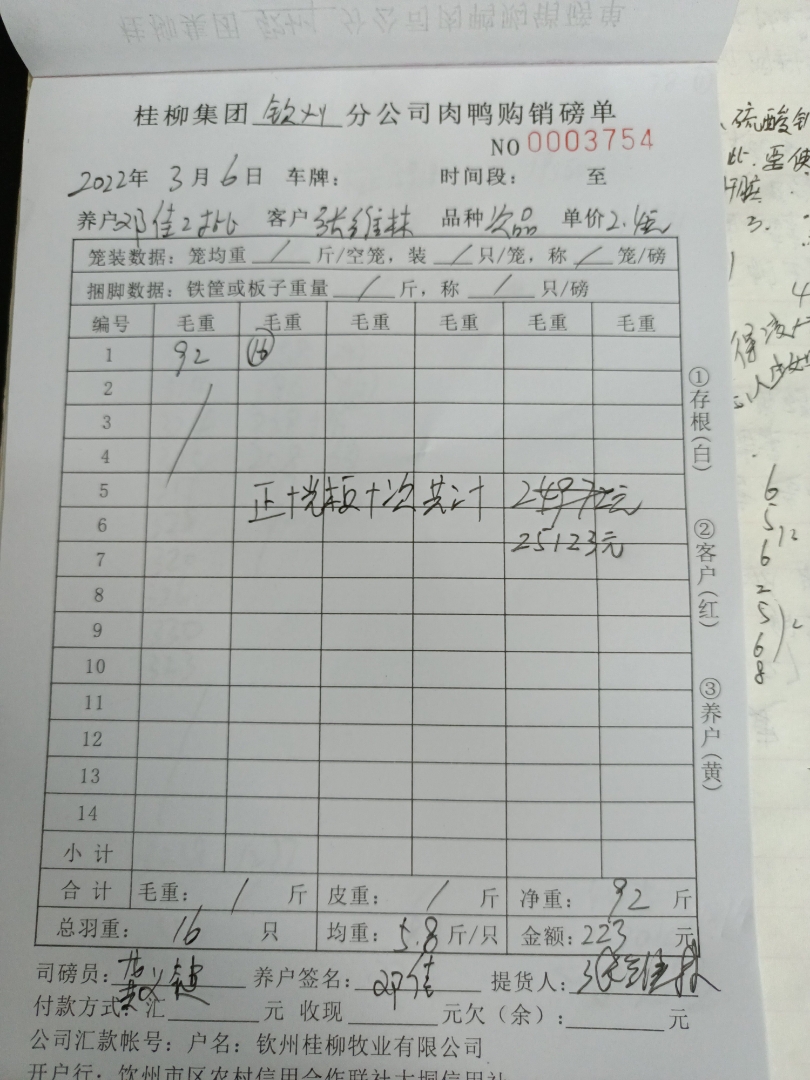 桂柳集团 钦州 分公司肉鸭购销磅单
NO 0003754
2022年 3月 6日 车牌: 时间段: 至
养户 邓佳 客户 张维林 品种 次品 单价 2.
笼装数据: 笼均重 / 斤/空笼, 装 / 只/笼, 称 / 笼/磅
捆脚数据: 铁筐或板子重量 / 斤, 称 / 只/磅
编号 毛重 毛重 毛重 毛重 毛重 毛重
1 92 16
2
3
4
5 正+光板+次 共计
6 25123元
7
8
9
10
11
12
13
14
小计
合计 毛重: / 斤 皮重: / 斤 净重: 92 斤
总羽重: 16 只 均重: 5.8 斤/只 金额: 223 元
司磅员: 养户签名: 邓佳 提货人: 张维林
付款方式: 汇 元 收现 元欠(余): 元
公司汇款帐号: 户名: 钦州桂柳牧业有限公司
开户行: 钦州市区农村信用合作联社大垌信用社
①存根(白)
②客户(红)
③养户(黄)
硫酸
6
5
12
6
2
5
2
6
8